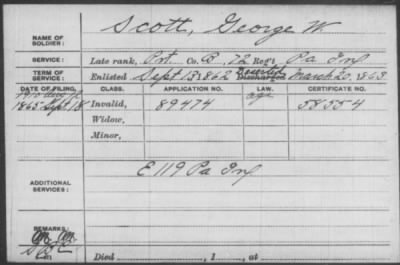 NAME OF SOLDIER: Scott, George W.
SERVICE: Late rank, Pvt. Co. B, 72 Reg't Pa Inf
TERM OF SERVICE: Enlisted Sept 13, 1862 Deserted Discharged March 20, 1863
DATE OF FILING. CLASS. APPLICATION NO. LAW. CERTIFICATE NO.
1865 Sept 18 Invalid, 89474 58554
Widow,
Minor,
ADDITIONAL SERVICES: E 119 Pa Inf
REMARKS:
Died , 1 , at